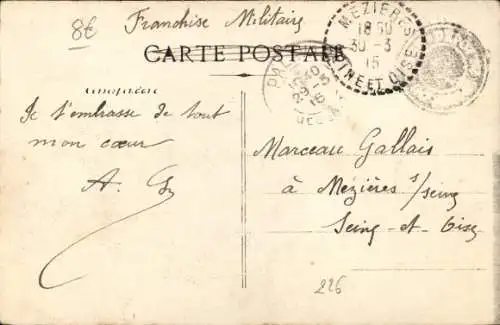 8€
Franchise Militaire
CARTE POSTALE
MEZIERES
18 50
30 -3
15
SEINE ET OISE
29 -3
15
Je t'embrasse de tout
mon cœur
A. G
Marceau Gallais
à Mézières s/seine
Seine-et-Oise
226